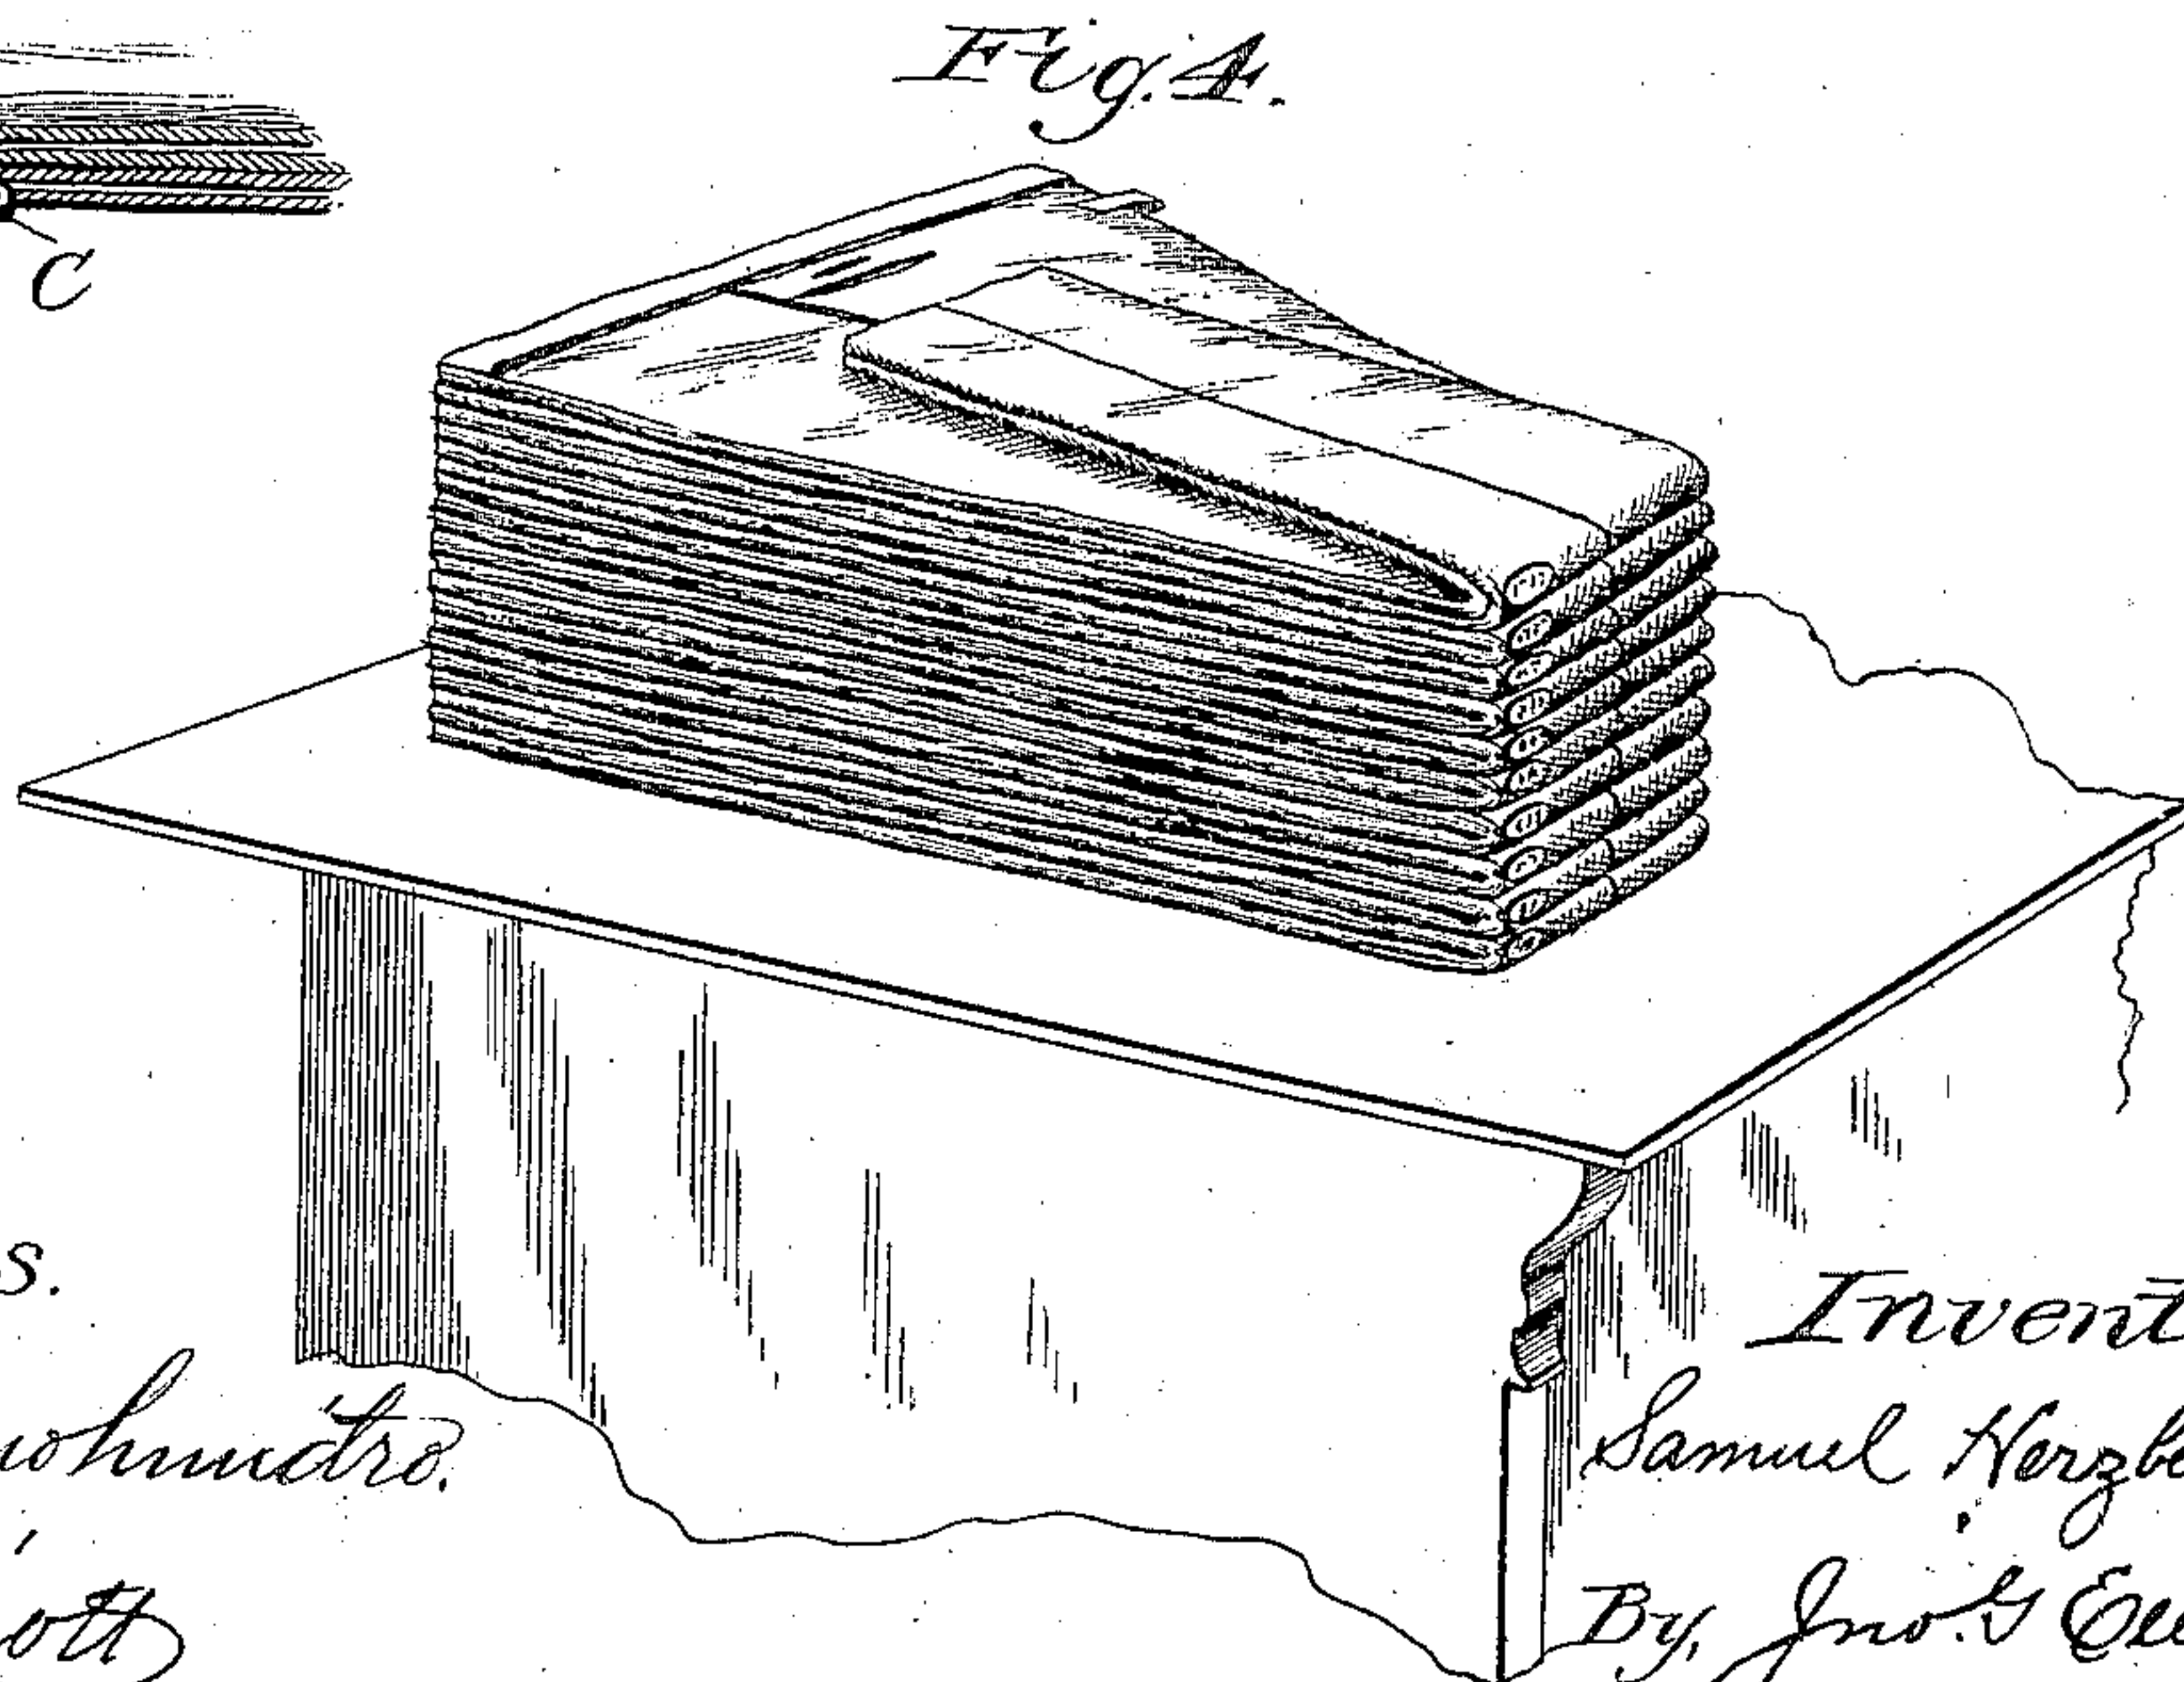 Fig. 4.
C
s.
Invent
Samuel Herzbe
ott
By, Jno. G Ell